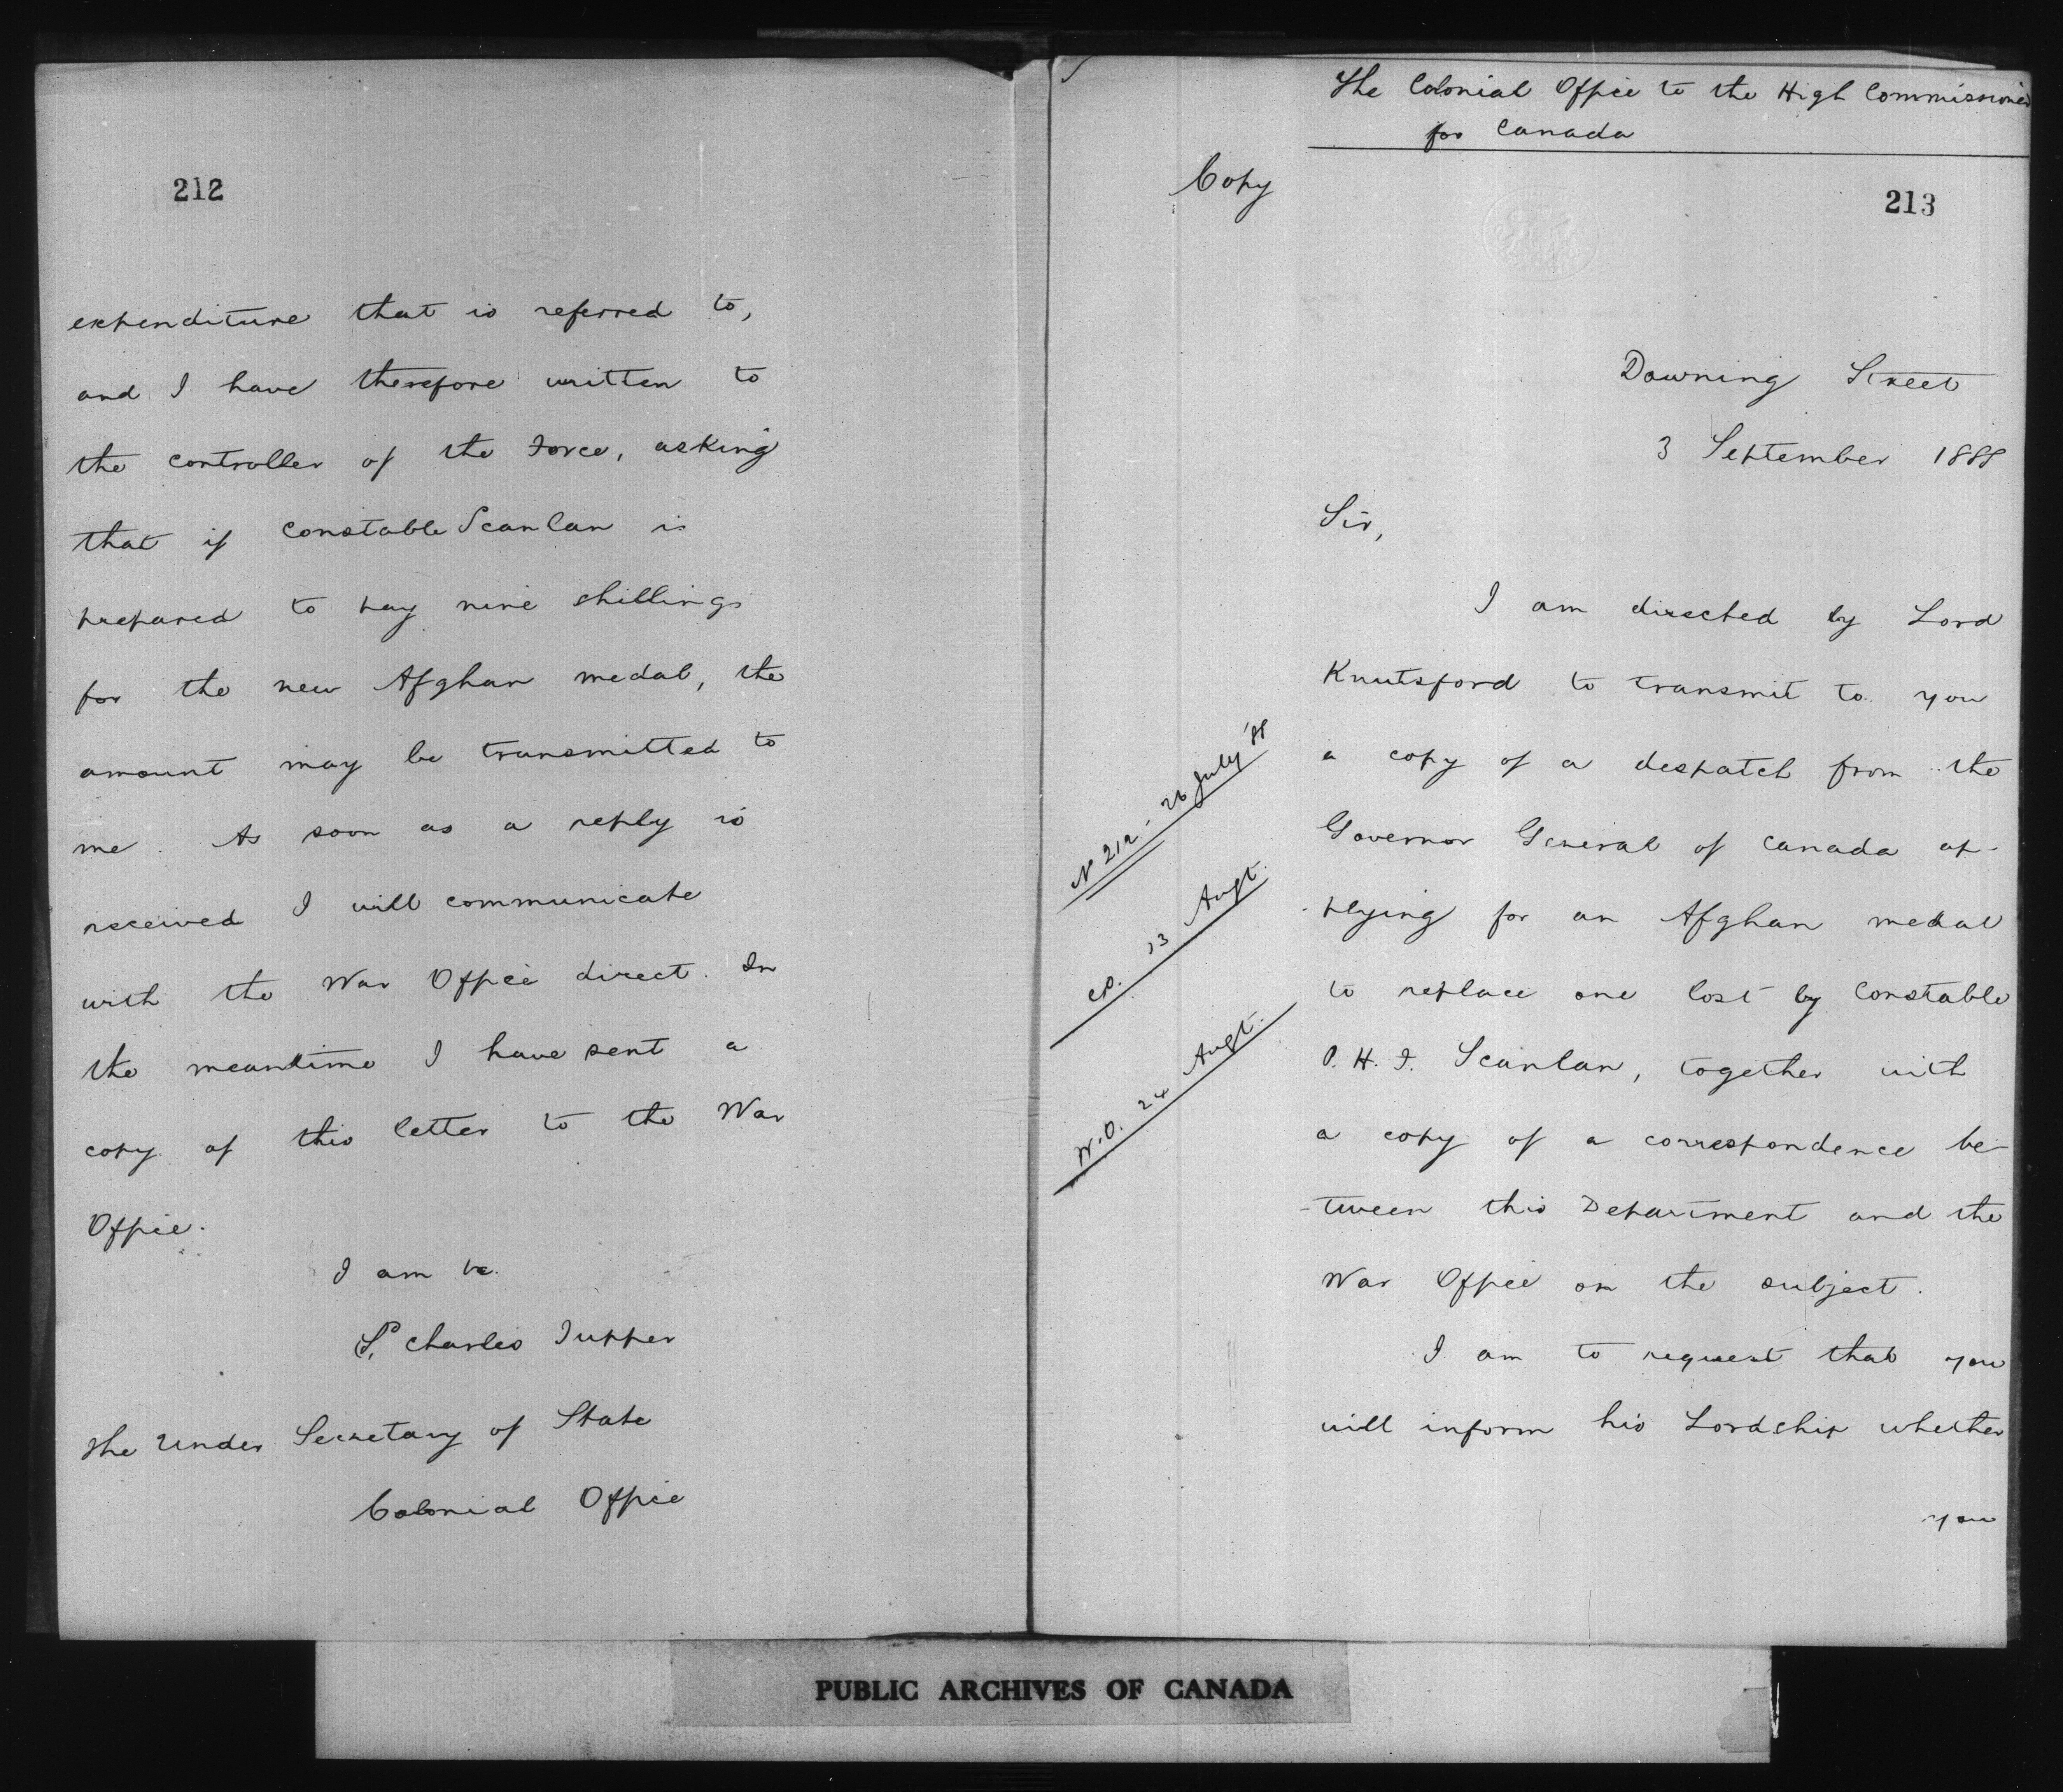 212
expenditure that is referred to,
and I have therefore written to
the controller of the Force, asking
that if Constable Scanlan is
prepared to pay nine shillings
for the new Afghan medal, the
amount may be transmitted to
me. As soon as a reply is
received I will communicate
with the War Office direct. In
the meantime I have sent a
copy of this letter to the War
Office.
I am &c.
Charles Tupper
The Under Secretary of State
Colonial Office
The Colonial Office to the High Commissioner
for Canada
Copy
213
Downing Street
3 September 1888
Sir,
I am directed by Lord
Knutsford to transmit to you
a copy of a despatch from the
Governor General of Canada ap-
-plying for an Afghan medal
to replace one lost by Constable
P. H. F. Scanlan, together with
a copy of a correspondence be-
-tween this Department and the
War Office on the subject.
I am to request that you
will inform his Lordship whether
you
No 212 - 26 July '88
13 Augt.
W.O. 24 Augt.
PUBLIC ARCHIVES OF CANADA